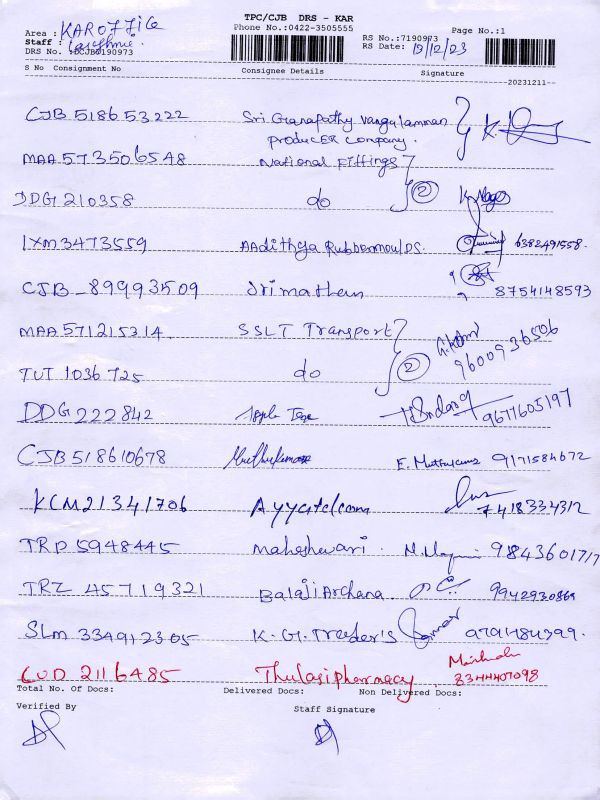 TPC/CJB DRS - KAR
Area : KAR OFFICE
Phone No.:0422-3505555
Page No.:1
Staff :
RS No.:7190973
DRS No. :DCJB7190973
RS Date: 19/12/23
S No Consignment No Consignee Details Signature
20231211
CJB 518653222 Sri Ganapathy Vangalamman
Producer Company.
MAA 573506548 National Fittings
DDG 210358 do 2
IXM 3473559 Aadithya Rubbermoulds. 6382491558.
CJB - 89993509 Srimathen 8754148593
MAA 571215314 SSLT Transport
TUT 1036725 do 2 9600936506
DDG 222842 9677605197
CJB 518610678 Muthukumar E. Muthukumar 9171584672
KCM21341706 7418334312
TRP 5948445 Maheshwari. 9843601717
TRZ 45719321 Balaji Archana. 9942930869
SLM 334912305 K. G. Treder's 9791484399.
CUD 2116485 Thulasi pharmacy 8344407098
Total No. Of Docs: Delivered Docs: Non Delivered Docs:
Verified By Staff Signature